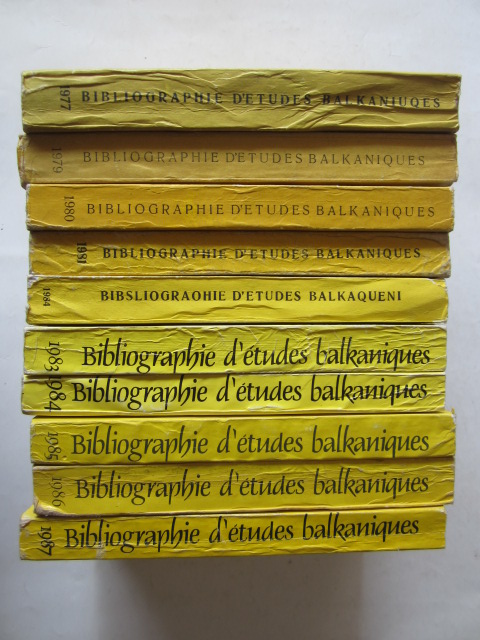 1977 BIBLIOGRAPHIE D'ETUDES BALKANIUQES
1979 BIBLIOGRAPHIE D'ETUDES BALKANIQUES
1980 BIBLIOGRAPHIE D'ETUDES BALKANIQUES
1981 BIBLIOGRAPHIE D'ETUDES BALKANIQUES
1984 BIBSLIOGRAOHIE D'ETUDES BALKAQUENI
1983 Bibliographie d'études balkaniques
1984 Bibliographie d'études balkaniques
1985 Bibliographie d'études balkaniques
1986 Bibliographie d'études balkaniques
1987 Bibliographie d'études balkaniques